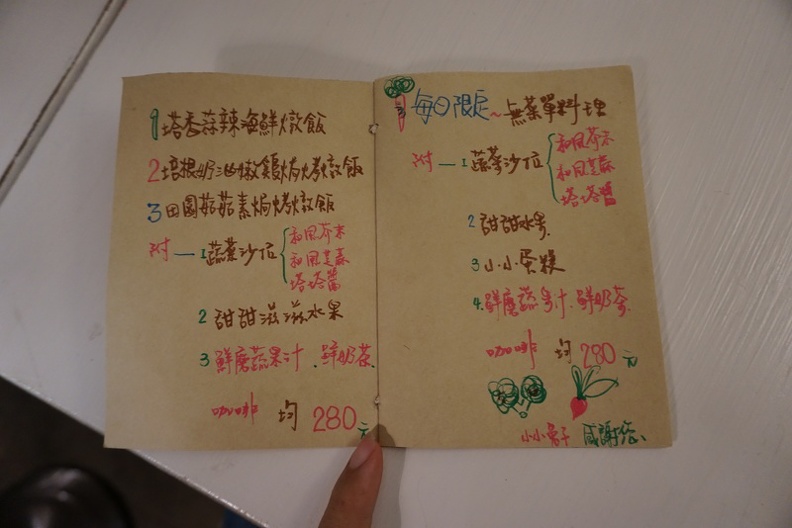 1塔香蒜辣海鮮燉飯
2培根奶油嫩雞焗烤燉飯
3田園菇菇素焗烤燉飯
附—1蔬菜沙拉{和風芥末
和風芝麻
塔塔醬
2甜甜滋滋水果
3鮮磨蔬果汁.鮮奶茶.
咖啡 均280元
每日限定~無菜單料理
附—1蔬菜沙拉{和風芥末
和風芝麻
塔塔醬
2甜甜水果.
3小小蛋糕
4.鮮磨蔬果汁.鮮奶茶.
咖啡 均280元
小小兔子 感謝您.